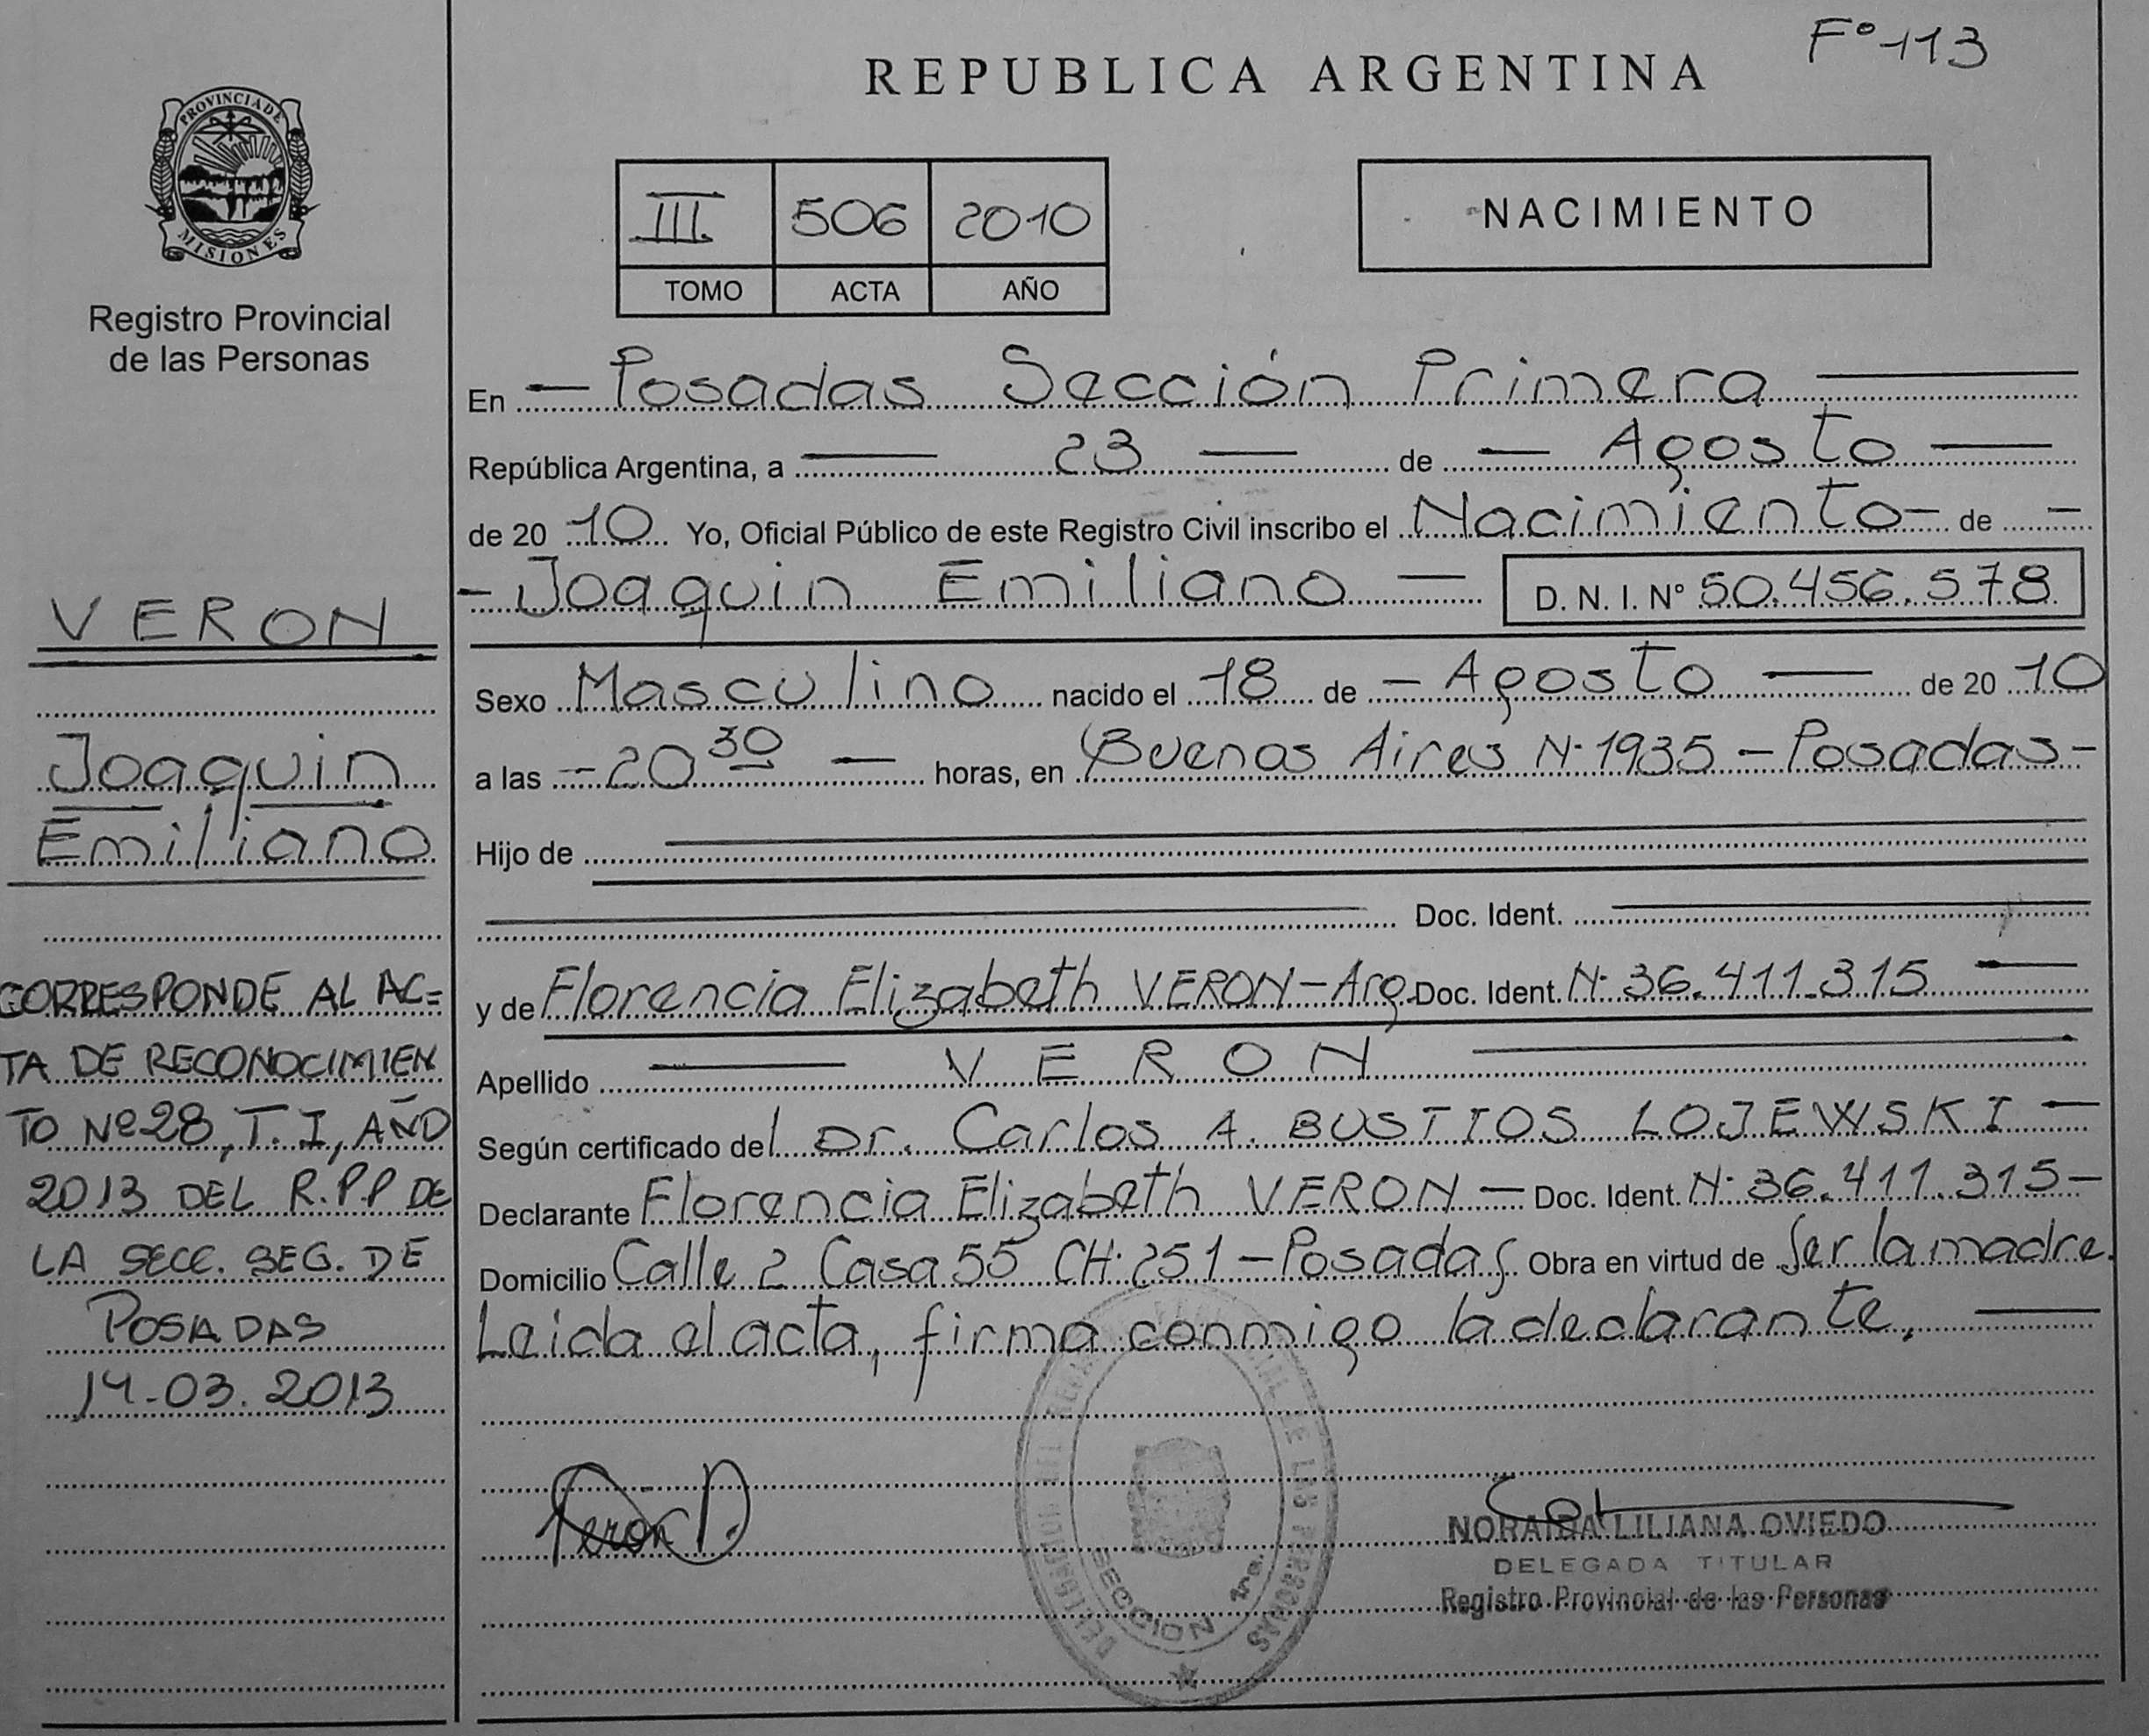 F° 113
REPUBLICA ARGENTINA
PROVINCIA DE
MISIONES
Registro Provincial
de las Personas
III. 506 2010
TOMO ACTA AÑO
NACIMIENTO
En Posadas Sección Primera
República Argentina, a 23 de Agosto
de 20 10 Yo, Oficial Público de este Registro Civil inscribo el Nacimiento de
Joaquin Emiliano D. N. I. N° 50.456.578
Sexo Masculino nacido el 18 de Agosto de 20 10
a las 20 30 horas, en Buenos Aires N° 1935 - Posadas -
Hijo de
Doc. Ident.
y de Florencia Elizabeth VERON - Arg. Doc. Ident. N° 36.411.315
Apellido VERON
Según certificado del Dr. Carlos A. BUSTIOS LOJEWSKI
Declarante Florencia Elizabeth VERON - Doc. Ident. N° 36.411.315 -
Domicilio Calle 2 Casa 55 CH: 251 - Posadas Obra en virtud de Ser la madre.
Leida el acta, firma conmigo la declarante.
VERON
Joaquin
Emiliano
CORRESPONDE AL AC=
TA DE RECONOCIMIEN
TO Nº 28, T. I, AÑO
2013 DEL R.P.P DE
LA SECC. SEG. DE
POSADAS
14-03.2013
Veron
SECCION 1ra.
NORAIDA LILIANA OVIEDO
DELEGADA TITULAR
Registro Provincial de las Personas